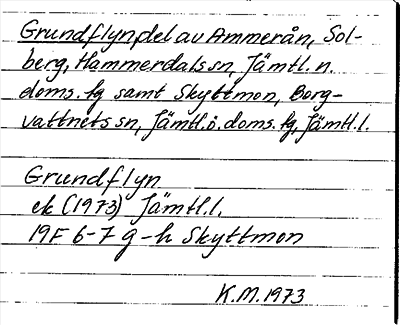 Grundflyn, del av Ammerån, Sol-
berg, Hammerdals sn, Jämtl. n.
doms. fg samt Skyttmon, Borg-
vattnets sn, Jämtl. ö. doms. fg, Jämtl. l.
Grundflyn
ek (1973) Jämtl. l.
19F 6-7 g-h Skyttmon
K.M. 1973